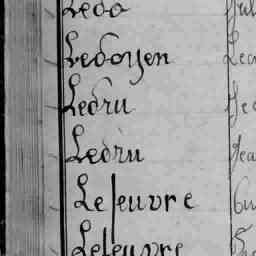 Ledo
Ledoyen
Ledru
Ledru
Lefeuvre
Lefeuvre